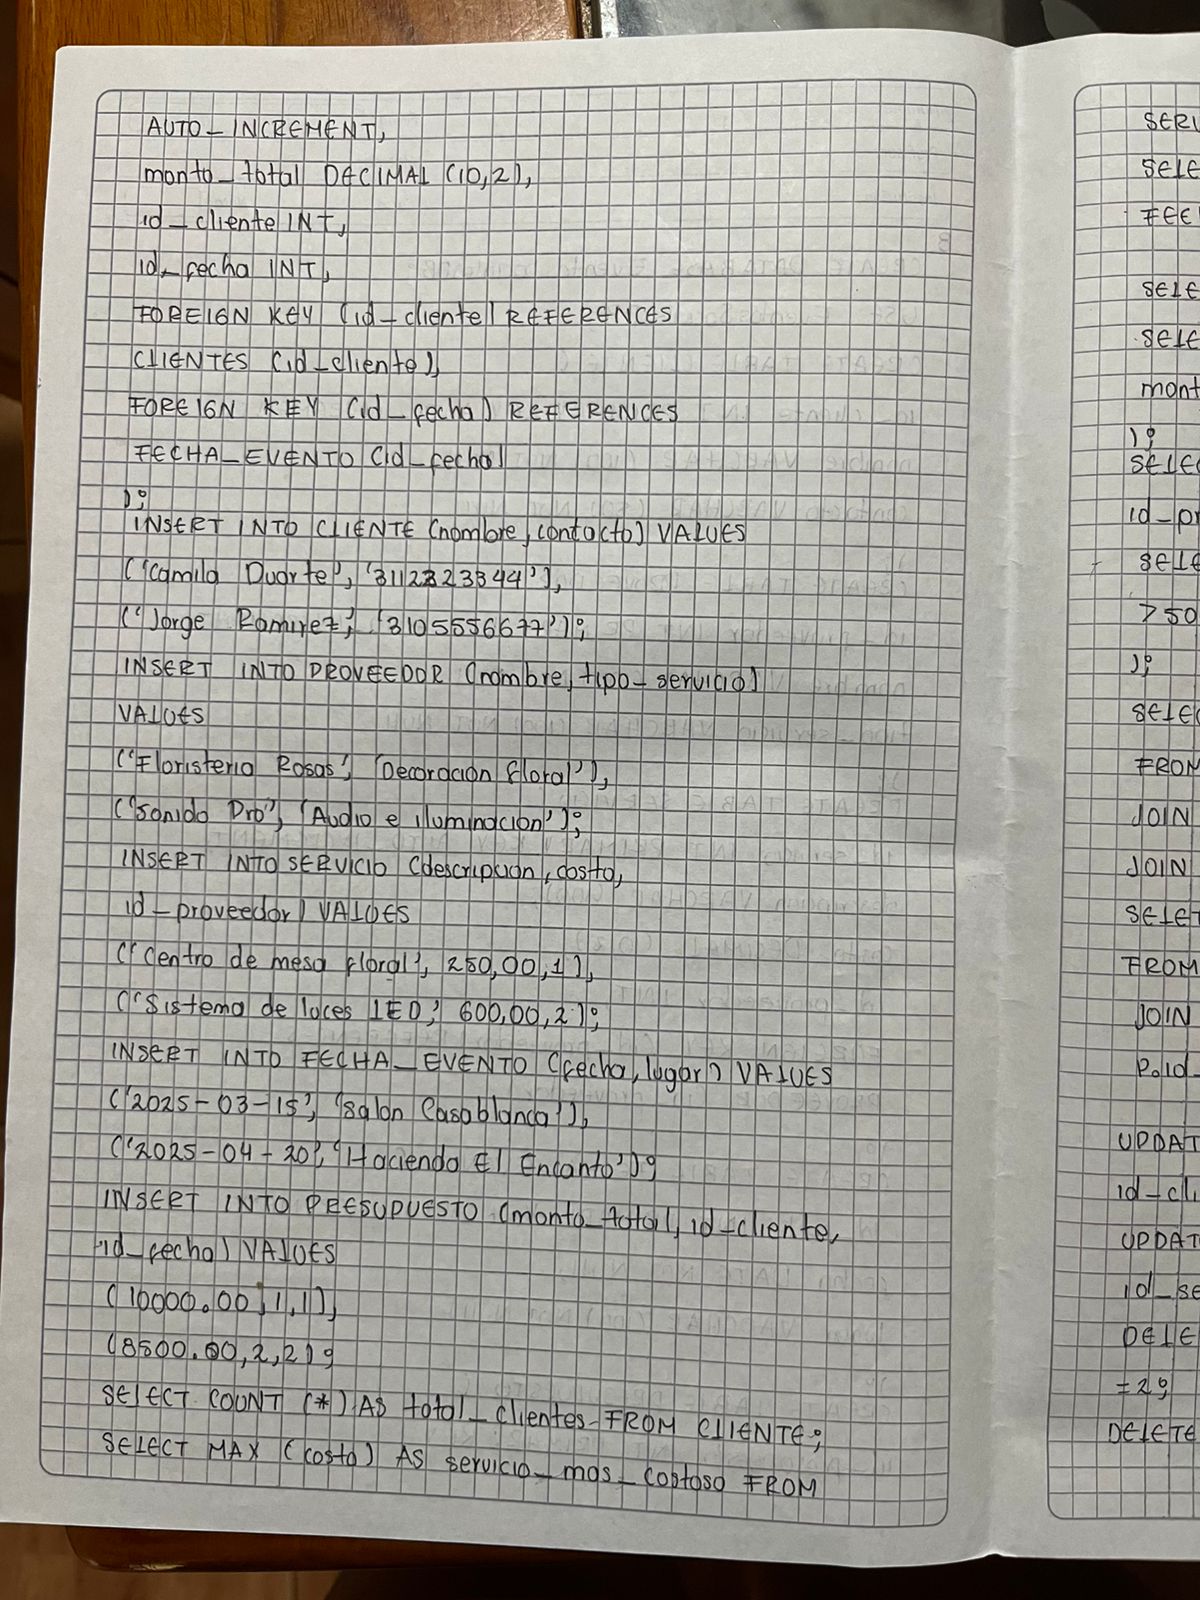 AUTO_INCREMENT,
monto_total DECIMAL (10,2),
id_cliente INT,
id_fecha INT,
FOREIGN KEY (id_cliente) REFERENCES
CLIENTES (id_cliente),
FOREIGN KEY (id_fecha) REFERENCES
FECHA_EVENTO (id_fecha)
);
INSERT INTO CLIENTE (nombre, contacto) VALUES
('Camila Duarte', '3112323344'),
('Jorge Ramirez', '3105556677');
INSERT INTO PROVEEDOR (nombre, tipo_servicio)
VALUES
('Floristeria Rosas', 'Decoracion floral'),
('Sonido Pro', 'Audio e iluminacion');
INSERT INTO SERVICIO (descripcion, costo,
id_proveedor) VALUES
('Centro de mesa floral', 250,00,1),
('Sistema de luces LED', 600,00,2);
INSERT INTO FECHA_EVENTO (fecha, lugar) VALUES
('2025-03-15', 'Salon Casablanca'),
('2025-04-20', 'Hacienda El Encanto');
INSERT INTO PRESUPUESTO (monto_total, id_cliente,
id_fecha) VALUES
(10000.00,1,1),
(8500.00,2,2);
SELECT COUNT (*) AS total_clientes FROM CLIENTE;
SELECT MAX (costo) AS servicio_mas_costoso FROM
mont
);
id_pr
>50
);
FROM
JOIN
JOIN
FROM
JOIN
P.id_
UPDAT
id_cli
UPDAT
id_se
DELE
=2;
DELETE